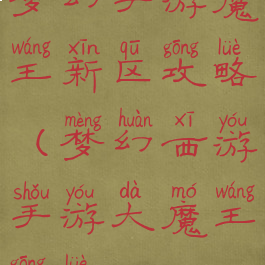 梦幻手游魔
wáng xīn qū gōng lüè
王新区攻略
mèng huàn xī yóu
(梦幻西游
shǒu yóu dà mó wáng
手游大魔王
gōng lüè